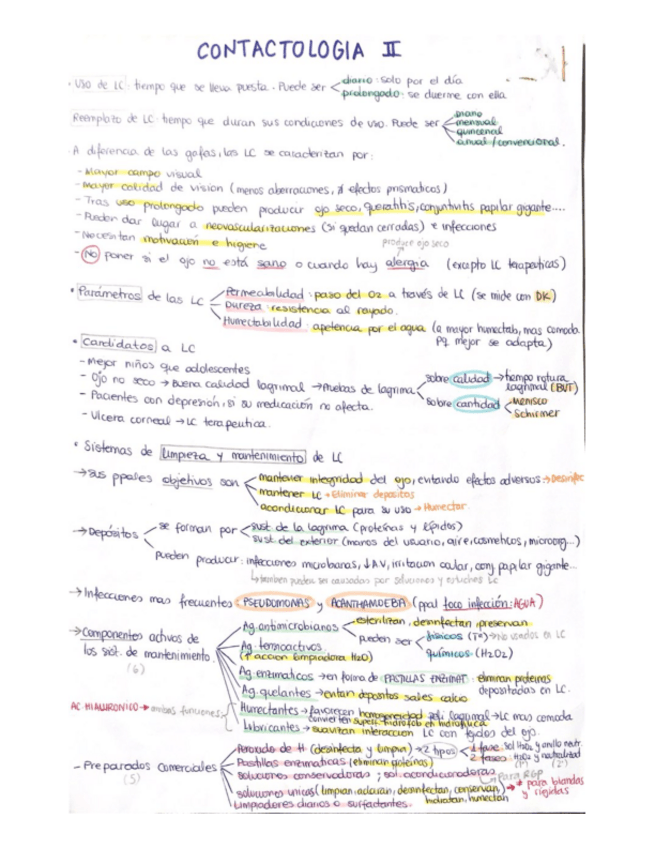 CONTACTOLOGIA II
· Uso de LC: tiempo que se lleva puesta. Puede ser
diario: solo por el día
prolongado: se duerme con ella
Reemplazo de LC: tiempo que duran sus condiciones de uso. Puede ser
diario
mensual
quincenal
anual/convencional.
· A diferencia de las gafas, las LC se caracterizan por:
- Mayor campo visual
- Mayor calidad de vision (menos aberraciones, ∄ efectos prismaticos)
- Tras uso prolongado pueden producir ojo seco, queratitis, conjuntivitis papilar gigante....
- Pueden dar lugar a neovascularizaciones (si quedan cerradas) e infecciones
- Necesitan motivación e higiene
produce ojo seco
- NO poner si el ojo no está sano o cuando hay alergia (excepto LC terapeuticas)
· Parámetros de las LC
Permeabilidad: paso del O2 a través de LC (se mide con DK)
Dureza: resistencia al rayado.
Humectabilidad: apetencia por el agua (a mayor humectab, mas comoda.
Pq mejor se adapta)
· Candidatos a LC
- Mejor niños que adolescentes
- Ojo no seco → Buena calidad lagrimal → Pruebas de lagrima
sobre calidad → tiempo rotura
lagrimal (BUT)
sobre cantidad
Menisco
Schirmer
- Pacientes con depresión, si su medicación no afecta.
- Ulcera corneal → LC terapeutica.
· Sistemas de limpieza y mantenimiento de LC
→ Sus ppales objetivos son
mantener integridad del ojo, evitando efectos adversos → Desinfec
mantener LC → Eliminar depositos
acondicionar LC para su uso → Humectar
→ Depósitos
se forman por
sust de la lagrima (proteinas y lípidos)
sust del exterior (manos del usuario, aire, cosmeticos, microorg...)
pueden producir: infecciones microbianas, ↓AV, irritacion ocular, conj papilar gigante...
↳ tambien pueden ser causadas por soluciones y estuches LC
→ Infecciones mas frecuentes PSEUDOMONAS y ACANTHAMOEBA (ppal foco infección: AGUA)
→ Componentes activos de
los sist. de mantenimiento.
(6)
Ag. antimicrobianos
esterilizan, desinfectan, preservan
pueden ser
físicos (Tº) → no usados en LC
químicos (H2O2)
Ag. tensoactivos
(↑ accion limpiadora H2O)
Ag enzimaticos → en forma de PASTILLAS ENZIMAT. eliminan proteinas
depositadas en LC.
Ag. quelantes → evitan depositos sales calcio
AC. HIALURONICO → ambas funciones
Humectantes → favorecen homogeneidad peli lagrimal → LC mas comoda
convierten superf. hidrofob en hidrofilica
Lubricantes → suavizan interaccion LC con tejidos del ojo.
- Preparados Comerciales
(5)
Peroxido de H (desinfecta y limpia) → 2 tipos
1 fase: sol H2O2 y anillo neutr.
2 fases: H2O2 y neutralidad
(1º) (2º)
Pastillas enzimaticas (eliminan proteinas)
soluciones conservadoras ; sol. acondicionadoras
Para RGP
soluciones unicas (limpian, aclaran, desinfectan, conservan)
hidratan, humectan
* para blandas
y rigidas
Limpiadores diarios o surfactantes.